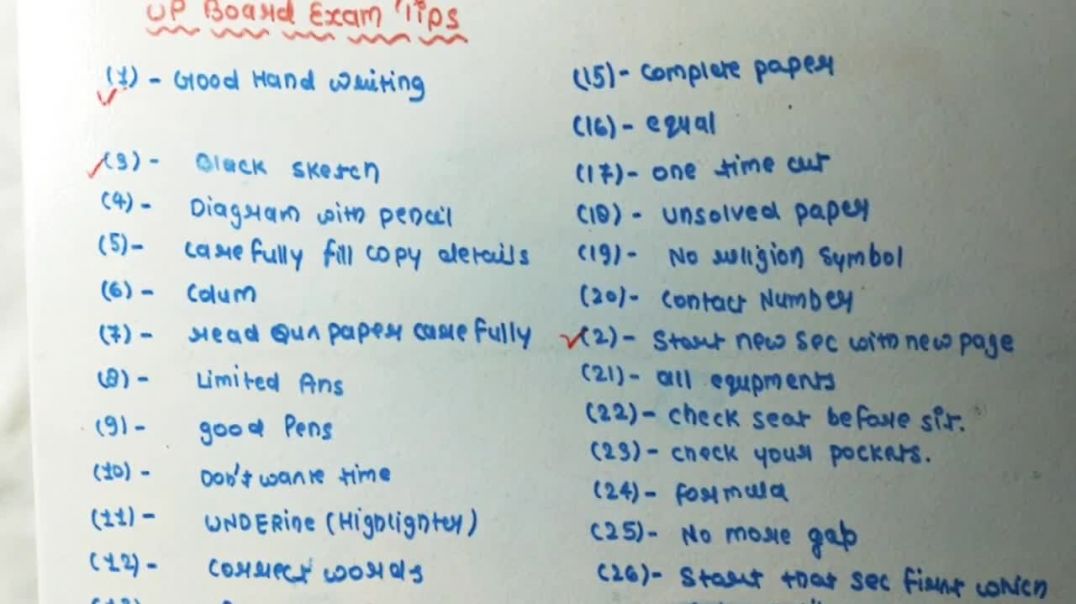 UP Board Exam Tips
(1) - Good Hand writing
(3) - Black sketch
(4) - Diagram with pencil
(5) - carefully fill copy details
(6) - Colum
(7) - read Qun paper carefully
(8) - Limited Ans
(9) - good Pens
(10) - Don't wante time
(11) - UNDERine (Highlighter)
(12) - correct words
(15) - complete paper
(16) - equal
(17) - one time cut
(18) - unsolved paper
(19) - No religion Symbol
(20) - contact Number
(2) - Start new sec with new page
(21) - all equpments
(22) - check seat before sir.
(23) - check your pockats.
(24) - formula
(25) - No more gap
(26) - Start that sec first which